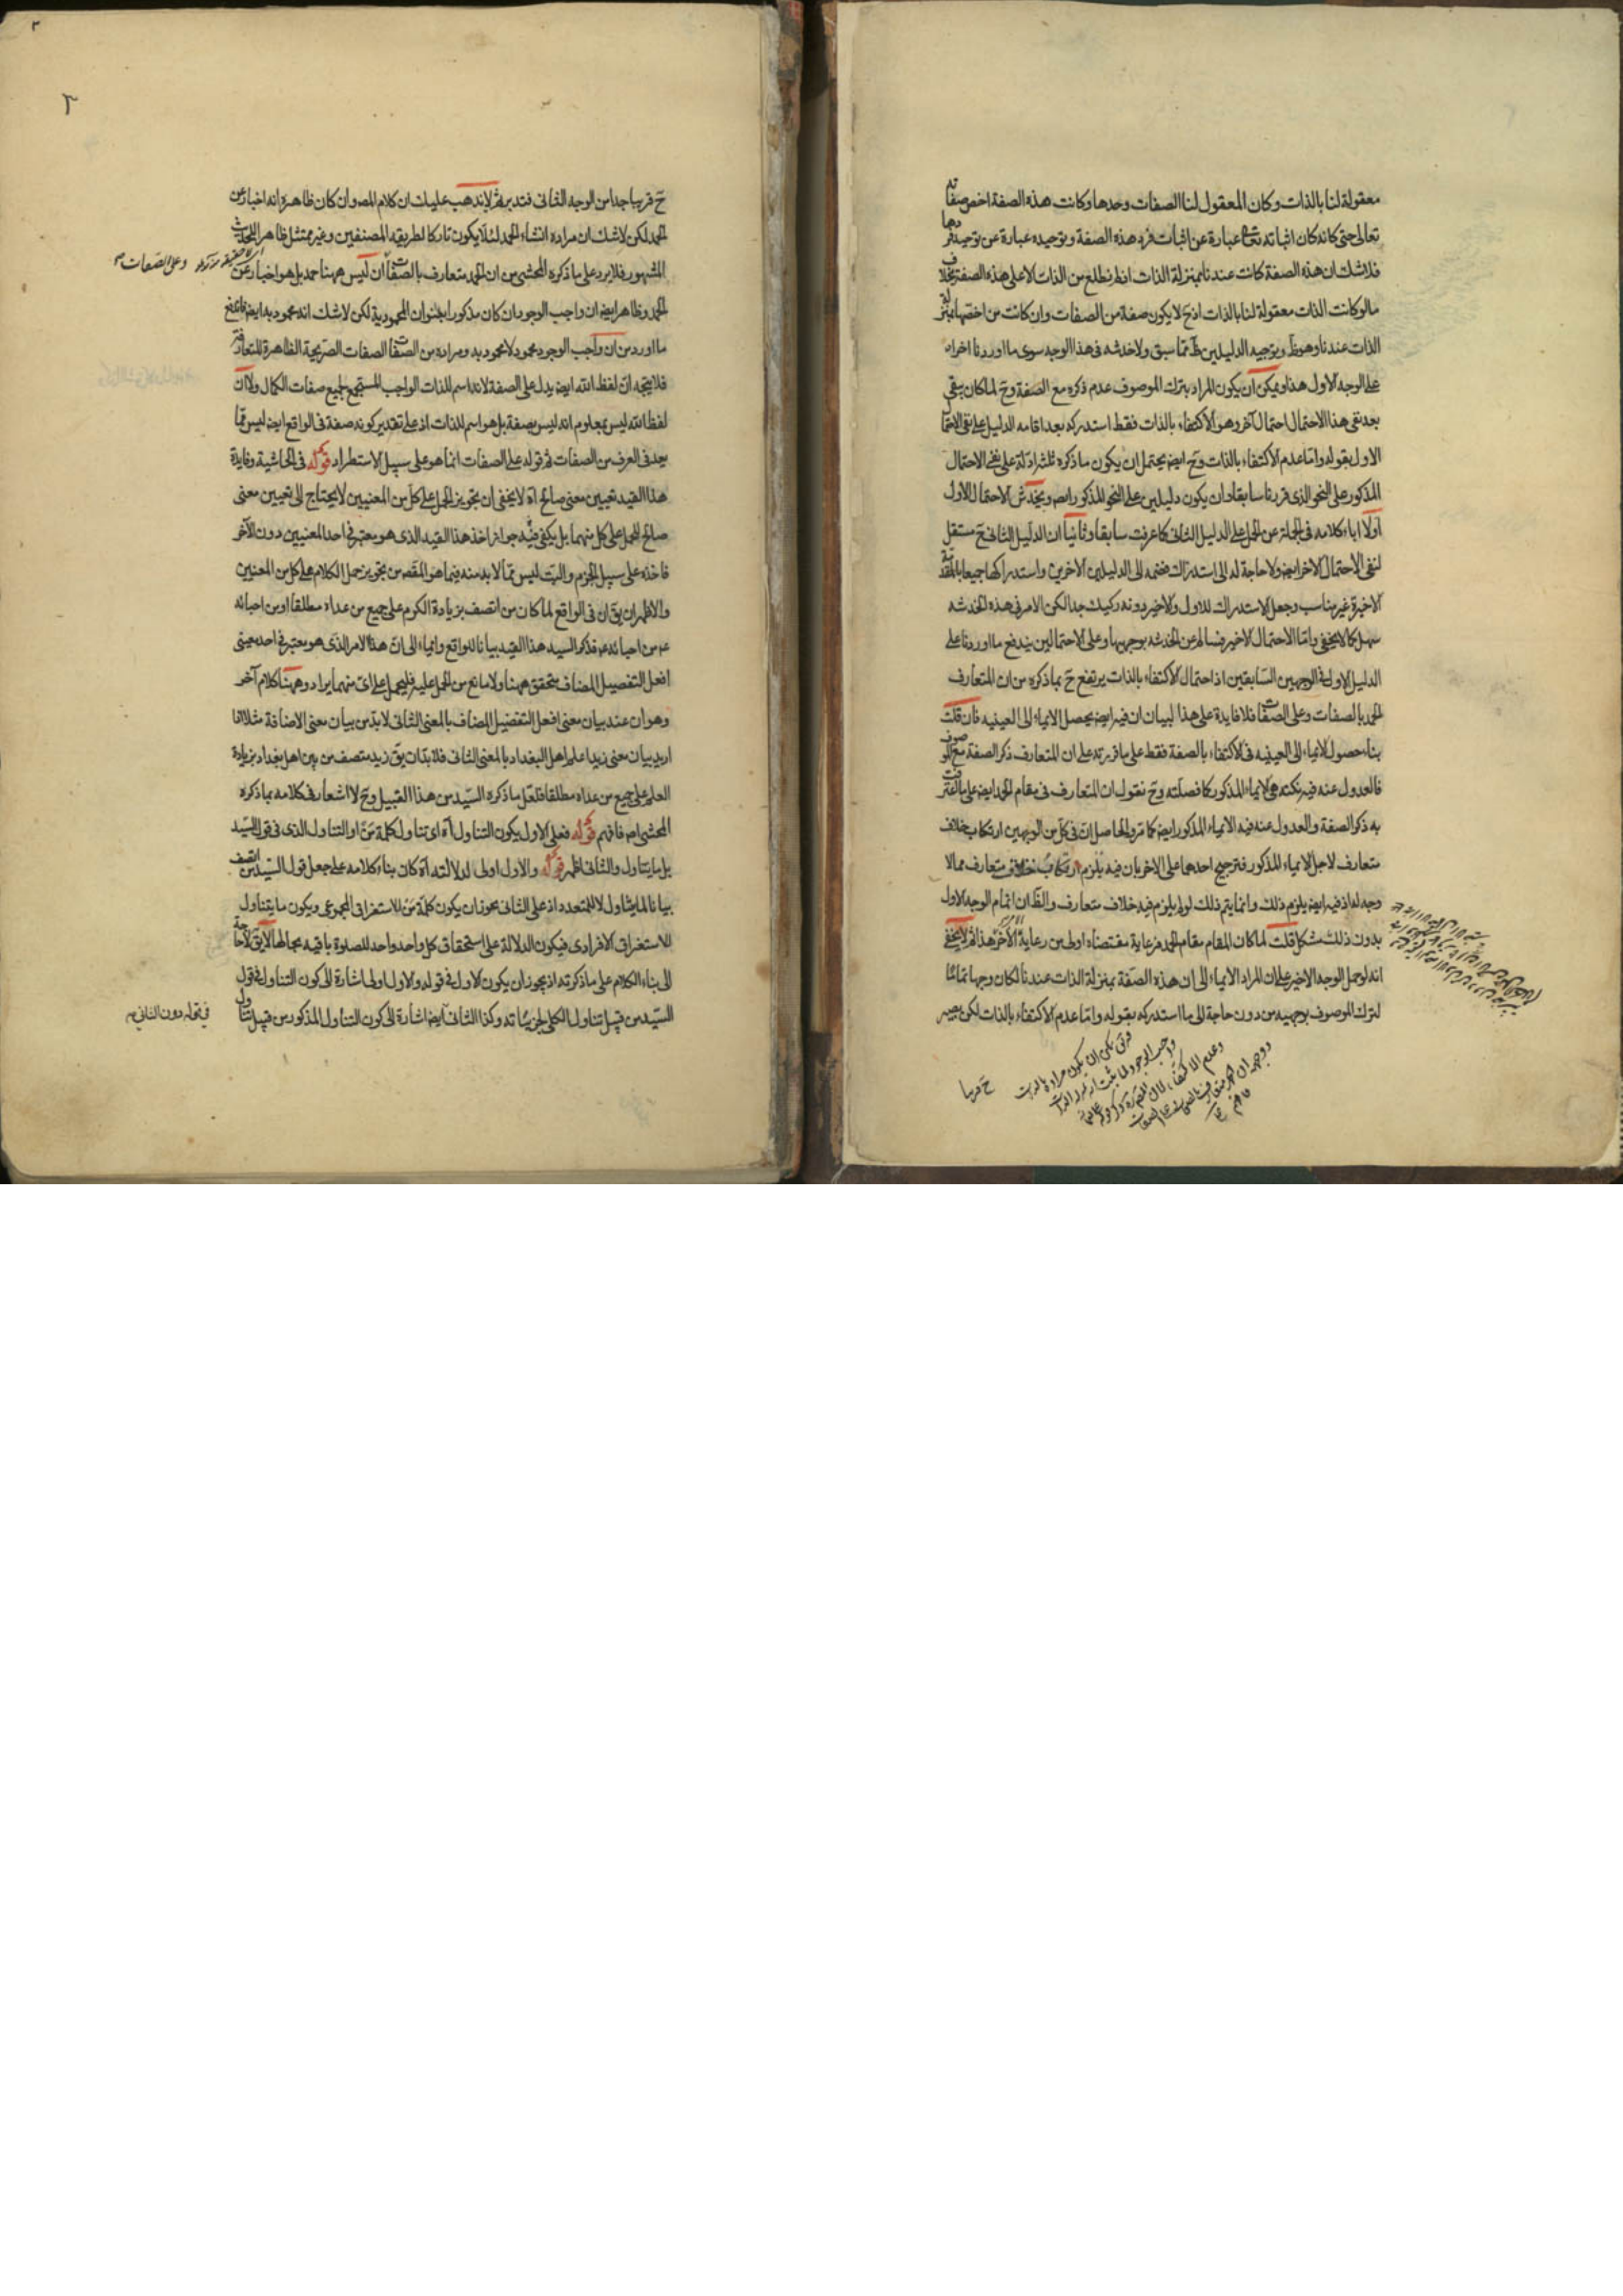 معقولة لنا بالذات وكان المعقول لنا الصفات وحدها وكانت هذه الصفة اخص صفاته
تعالى حتى كانه كان اثباته تعالى عبارة عن اثبات فرد هذه الصفة وتوحيده عبارة عن توحيد فردها
فلا شك ان هذه الصفة كانت عندنا بمنزلة الذات اذ لم نطلع من الذات الا على هذه الصفة بخلاف
ما لو كانت الذات معقولة لنا بالذات اذ ح لا يكون صفة من الصفات وان كانت من اخصها بمنزلة
الذات عندنا وهو ظ وتوجيه الدليلين ظ مما سبق ولا خدشه فى هذا الوجه سوى ما اوردنا اخرا
على الوجه الاول هذا ويمكن ان يكون المراد بترك الموصوف عدم ذكره مع الصفة وح لما كان بقى
بعد نفى هذا الاحتمال احتمال آخر وهو الاكتفاء بالذات فقط استدركه بعد اقامه الدليل على نفى الاحتمال
الاول بقوله واما عدم الاكتفاء بالذات وح ايض يحتمل ان يكون ما ذكره ثلثه ادلة على نفى الاحتمال
المذكور على النحو الذى قررنا سابقا وان يكون دليلين على النحو المذكور ايض ويخدش الاحتمال الاول
اولا اباء كلامه فى الجملة عن الحمل على الدليل الثانى كما عرفت سابقا وثانيا ان الدليل الثانى ح مستقل
لنفى الاحتمال الاخر ايض ولا حاجة له الى استدراك فضمه الى الدليلين الاخرين واستدراكها جميعا بالمقدمة
الاخيرة غير مناسب وجعل الاستدراك للاول والاخير دونه ركيك جدا لكن الامر فى هذه الخدشه
سهل كما لا يخفى واما الاحتمال الاخير فسالم عن الخدشه بوجهيها وعلى الاحتمالين يندفع ما اوردنا على
الدليل الاول فى الوجهين السابقين اذ احتمال الاكتفاء بالذات يرتفع ح بما ذكره من ان المتعارف
الحمد بالصفات وعلى الصفات فلا فايدة على هذا لبيان ان فيه ايض يحصل الايماء الى العينيه فان قلت
بناء حصول الايماء الى العينيه فى الاكتفاء بالصفة فقط على ما قررته على ان المتعارف ذكر الصفة مع الموصوف
فالعدول عنه فيه نكته هى الايماء المذكور كما فصلته وح نقول ان المتعارف فى مقام الحمد ايض على ما اعترفت
به ذكر الصفة والعدول عنه فيه الايماء المذكور ايض كما مر والحاصل ان فى كل من الوجهين ارتكاب خلاف
متعارف لاجل الايماء المذكور فترجيح احدهما على الاخر بان فيه يلزم ارتكاب خلاف متعارف مما لا
وجه له اذ فيه ايض يلزم ذلك وانما يتم ذلك لو لم يلزم فيه خلاف متعارف والظ ان اتمام الوجه الاول
بدون ذلك مشكل قلت لما كان المقام مقام الحمد فرعاية مقتضاه اولى من رعاية الآخر هذا ثم لا يخفى
انه لو حمل الوجه الاخير على ان المراد الايماء الى ان هذه الصفة بمنزلة الذات عندنا لكان وجها تماما
لترك الموصوف بوجهيه من دون حاجة الى ما استدركه بقوله واما عدم الاكتفاء بالذات لكن يصير
ح قريبا
ح قريبا جدا من الوجه الثانى فتدبر ثم لا يذهب عليك ان كلام المص وان كان ظاهره انه اخبار عن
الحمد لكن لا شك ان مراده انشاء الحمد لئلا يكون تاركا لطريقه المصنفين وغير ممتثل ظاهر الحديث
المشهور فلا يرد على ما ذكره المحشى من ان الحمد متعارف بالصفات ان ليس ههنا حمد بل هو اخبار عن
الحمد وظاهر ايض ان واجب الوجود ان كان مذكورا بعنوان المحمودية لكن لا شك انه محمود به ايض فاندفع
ما اورد من ان واجب الوجود محمود لا محمود به ومراده من الصفات الصفات الصريحة الظاهرة المتعارفة
فلا يتجه ان لفظ الله ايض يدل على الصفة لانه اسم للذات الواجب المستجمع لجميع صفات الكمال ولا ان
لفظ الله ليس بمعلوم انه ليس بصفة بل هو اسم للذات اذ على تقدير كونه صفة فى الواقع ايض ليس مما
يعد فى العرف من الصفات ثم قوله على الصفات انما هو على سبيل الاستطراد قوله فى الحاشية وفايدة
هذا القيد تعيين معنى صالح اه لا يخفى ان تجويز الحمل على كل من المعنيين لا يحتاج الى تعيين معنى
صالح للحمل على كل منهما بل يكفى فيه جواز اخذ هذا القيد الذى هو معتبر فى احد المعنيين دون الآخر
فاخذه على سبيل الجزم والبت ليس مما لا بد منه فيما هو المقصد من تجويز حمل الكلام على كل من المعنيين
والاظهر ان يق ان فى الواقع لما كان من اتصف بزيادة الكرم على جميع من عداه مطلقا او من احبائه
عم من احبائه عم فذكر السيد هذا القيد بيانا للواقع وايماء الى ان هذا الامر الذى هو معتبر فى احد معنيى
افعل التفضيل المضاف متحقق ههنا ولا مانع من الحمل عليه فليحمل على اى منهما يراد وههنا كلام آخر
وهو ان عند بيان معنى افعل التفضيل المضاف بالمعنى الثانى لا بد من بيان معنى الاضافة مثلا اذا
اريد بيان معنى زيد اعلم اهل البغداد بالمعنى الثانى فلا بد ان يق زيد متصف من بين اهل بغداد بزيادة
العلم على جميع من عداه مطلقا فلعل ما ذكره السيد من هذا القبيل وح لا اشعار فى كلامه بما ذكره
المحشى اه فافهم قوله فعلى الاول يكون التناول اه اى تناول كلمة من او التناول الذى فى قول السيد
بل ما يتناول والثانى اظهر قوله والاول اولى لدلالته اه كان بناء كلامه على جعل قول السيد من اتصف
بيانا لما يتناول لا للمتعدد اذ على الثانى يجوز ان يكون كلمة من للاستغراق المجموعى ويكون ما يتناول
للاستغراق الافرادى فيكون الدلالة على استحقاق كل واحد واحد للصلوة باقيه بحالها لا يق لا حاجة
الى بناء الكلام على ما ذكرته اذ يجوز ان يكون الاول فى قوله والاول اولى اشارة الى كون التناول فى قول
السيد من قبيل تناول الكلى لجزئياته وكذا الثانى ايض اشارة الى كون التناول المذكور من قبيل تناول
وعلى الصفات
فى قوله دون الثانى